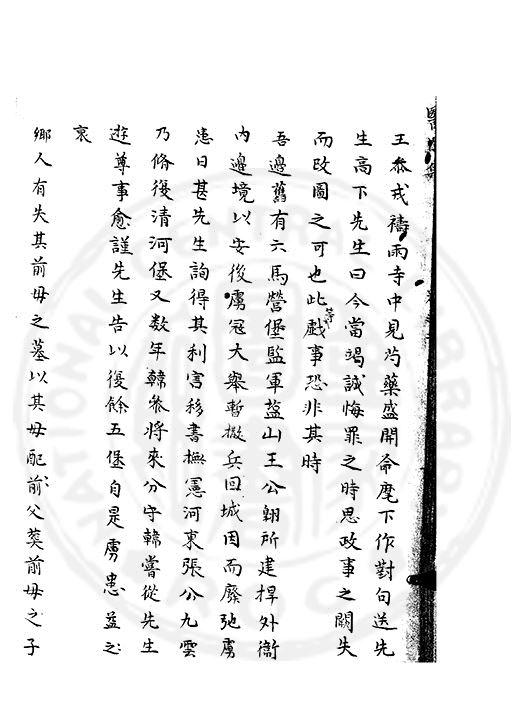 王叅戎禱雨寺中見芍藥盛開命麾下作對句送先
生高下先生曰今當竭誠悔罪之時思政事之闕失
而改圖之可也此等戲事恐非其時
吾邊舊有六馬營堡監軍盩山王公翱所建捍外衞
内邊境以安後虜冦大舉暫撤兵回城因而廢弛虜
患日甚先生詢得其利害移書撫憲河東張公九雲
乃脩復清河堡又数年韓叅將來分守韓嘗從先生
遊尊事愈謹先生告以復餘五堡自是虜患益
衰
鄉人有失其前母之墓以其母配前父葬前母之子